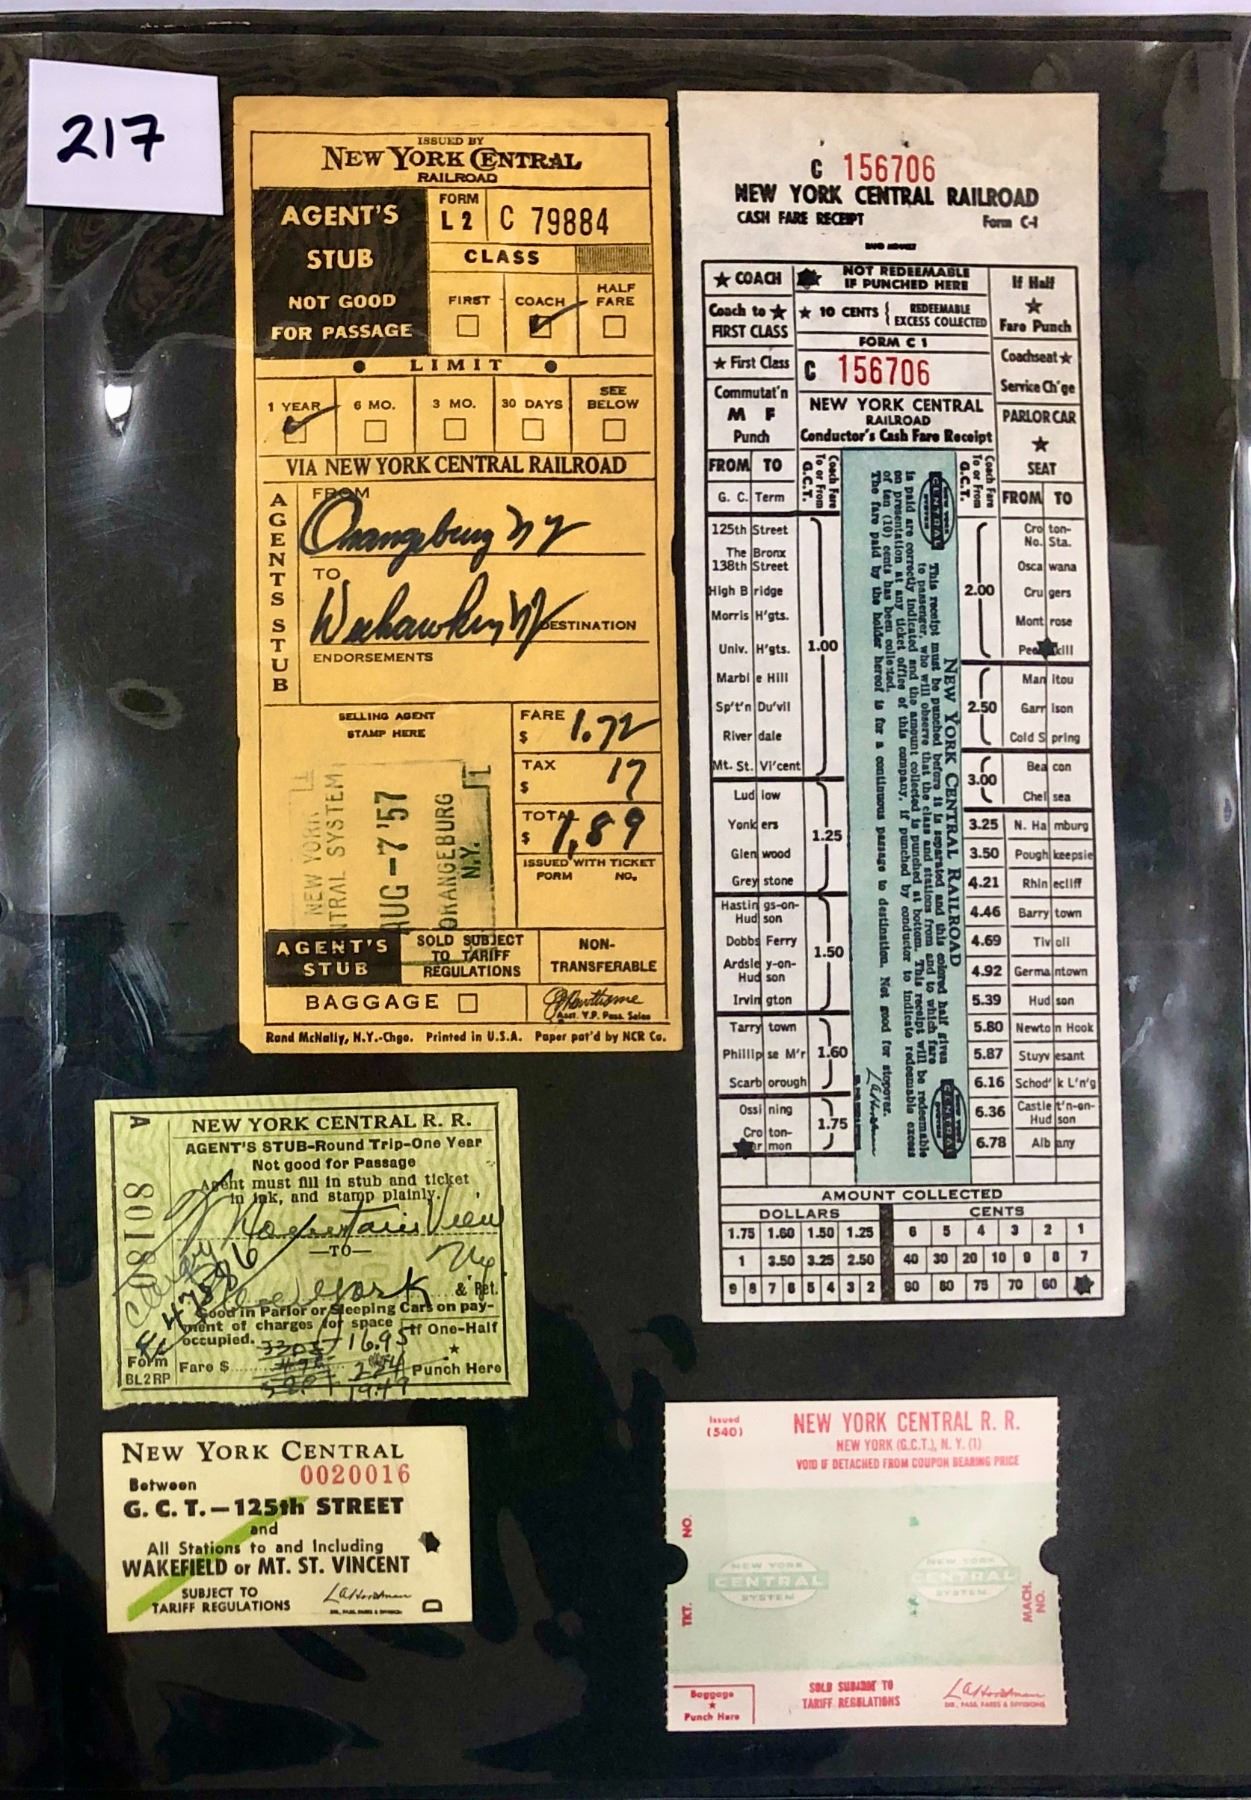 217
ISSUED BY
NEW YORK CENTRAL
RAILROAD
AGENT'S
STUB
NOT GOOD
FOR PASSAGE
FORM
L 2
C 79884
CLASS
FIRST
COACH
HALF
FARE
LIMIT
1 YEAR
6 MO.
3 MO.
30 DAYS
SEE
BELOW
VIA NEW YORK CENTRAL RAILROAD
AGENTS STUB
FROM
Orangeburg NY
TO
Weehawken NJ
DESTINATION
ENDORSEMENTS
SELLING AGENT
STAMP HERE
NEW YORK
NTRAL SYSTEM
AUG-7'57
ORANGEBURG
N.Y.
FARE
$ 1.72
TAX
$ 17
TOTAL
$ 1,89
ISSUED WITH TICKET
FORM NO.
AGENT'S
STUB
SOLD SUBJECT
TO TARIFF
REGULATIONS
NON-
TRANSFERABLE
BAGGAGE
Asst. V.P. Pass. Sales
Rand McNally, N.Y.-Chgo. Printed in U.S.A. Paper pat'd by NCR Co.
C 156706
NEW YORK CENTRAL RAILROAD
CASH FARE RECEIPT Form C-1
RAND MCNALLY
★ COACH
Coach to ★
FIRST CLASS
★ First Class
Commutat'n
M F
Punch
NOT REDEEMABLE
IF PUNCHED HERE
★ 10 CENTS { REDEEMABLE
EXCESS COLLECTED
FORM C 1
C 156706
NEW YORK CENTRAL
RAILROAD
Conductor's Cash Fare Receipt
If Half
★
Fare Punch
Coachseat ★
Service Ch'ge
PARLOR CAR
★
SEAT
FROM TO
Coach Fare
To or From
G.C.T.
G. C. Term
125th Street
The Bronx
138th Street
High Bridge
Morris H'gts.
Univ. H'gts.
Marble Hill
Sp't'n Du'vil
Riverdale
Mt. St. Vi'cent
1.00
Ludlow
Yonkers
Glenwood
Greystone
1.25
Hastings-on-
Hudson
Dobbs Ferry
Ardsley-on-
Hudson
Irvington
1.50
Tarrytown
Phillipse M'r
Scarborough
1.60
Ossining
Croton-
Harmon
1.75
NEW YORK CENTRAL RAILROAD
This receipt must be punched before it is separated and this colored half given
to passenger, who will observe that the class and stations from and to which fare
is paid are correctly indicated and the amount collected is punched at bottom. This receipt will be redeemable
on presentation at any ticket office of this company, if punched by conductor to indicate redeemable excess
of ten (10) cents has been collected.
The fare paid by the holder hereof is for a continuous passage to destination. Not good for stopover.
Coach Fare
To or From
G.C.T.
FROM TO
2.00
Croton-
No. Sta.
Oscawana
Crugers
Montrose
Peekskill
2.50
Manitou
Garrison
Cold Spring
3.00
Beacon
Chelsea
3.25 N. Hamburg
3.50 Poughkeepsie
4.21 Rhinecliff
4.46 Barrytown
4.69 Tivoli
4.92 Germantown
5.39 Hudson
5.80 Newton Hook
5.87 Stuyvesant
6.16 Schod'k L'n'g
6.36 Castlet'n-on-
Hudson
6.78 Albany
AMOUNT COLLECTED
DOLLARS CENTS
1.75 1.60 1.50 1.25 6 5 4 3 2 1
1 3.50 3.25 2.50 40 30 20 10 9 8 7
9 8 7 6 5 4 3 2 90 80 75 70 60
A
80180
NEW YORK CENTRAL R. R.
AGENT'S STUB-Round Trip-One Year
Not good for Passage
Agent must fill in stub and ticket
in ink, and stamp plainly.
Mountain View
—TO—
New York
NY
& Ret.
Clergy
47886
Good in Parlor or Sleeping Cars on pay-
ment of charges for space
occupied.
If One-Half
★
Punch Here
Form
BL2RP
Fare $
16.95
19.49
NEW YORK CENTRAL
0020016
Between
G. C. T. — 125th STREET
and
All Stations to and Including
WAKEFIELD or MT. ST. VINCENT
SUBJECT TO
TARIFF REGULATIONS
DIR., PASS. FARES & DIVISIONS
D
Issued
(540)
NEW YORK CENTRAL R. R.
NEW YORK (G.C.T.), N. Y. (1)
VOID IF DETACHED FROM COUPON BEARING PRICE
TKT. NO.
NEW YORK
CENTRAL
SYSTEM
NEW YORK
CENTRAL
SYSTEM
MACH.
NO.
Baggage
★
Punch Here
SOLD SUBJECT TO
TARIFF REGULATIONS
DIR., PASS. FARES & DIVISIONS